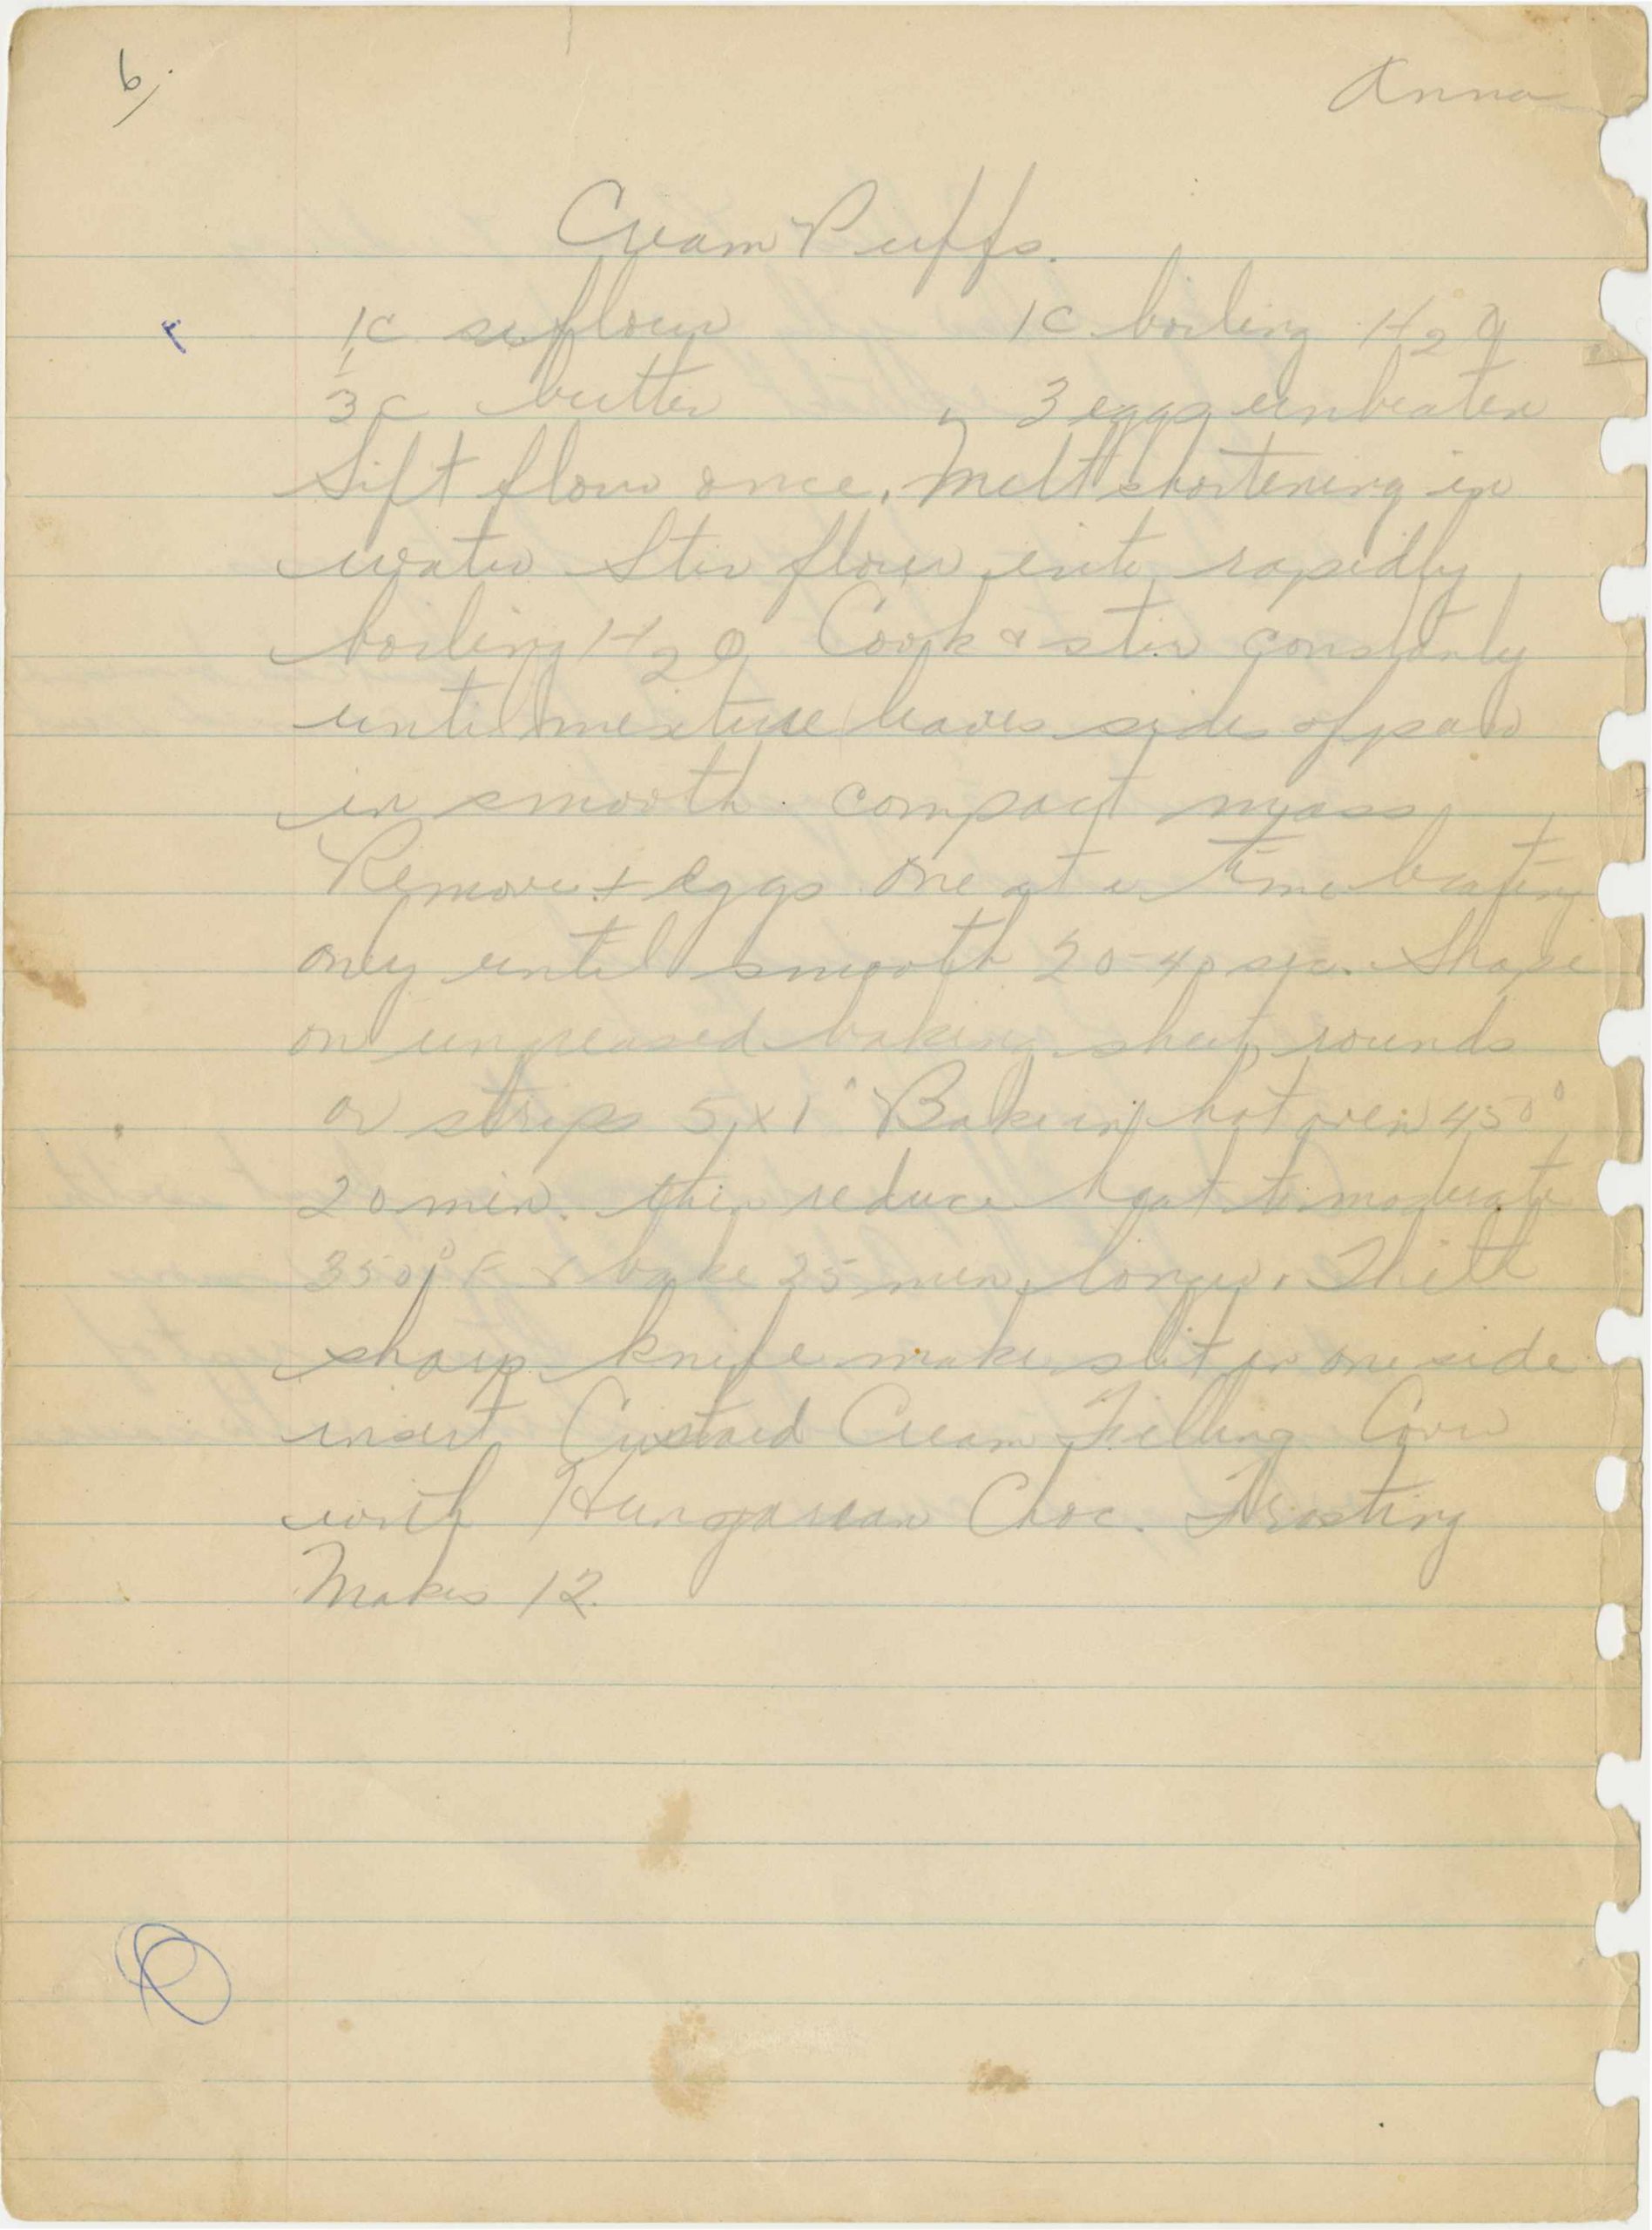 6/.
Anna
Cream Puffs.
1c flour 1c boiling H2O
1/3 c butter 3 eggs unbeaten
Sift flour once. Melt shortening in
water Stir flour into rapidly
boiling H2O Cook & stir constanly
until mixture leaves sides of pan
in smooth compact mass
Remove + eggs one at a time beating
only until smooth 20-40 sec. Shape
on ungreased baking sheet, rounds
or strips 5x1" Bake in hot oven 450°
20 min. then reduce heat to moderate
350°F & bake 25 min. longer.
sharp knife make slit in one side
insert Custard Cream Filling Cover
with Hungarian Choc. Frosting
Makes 12.